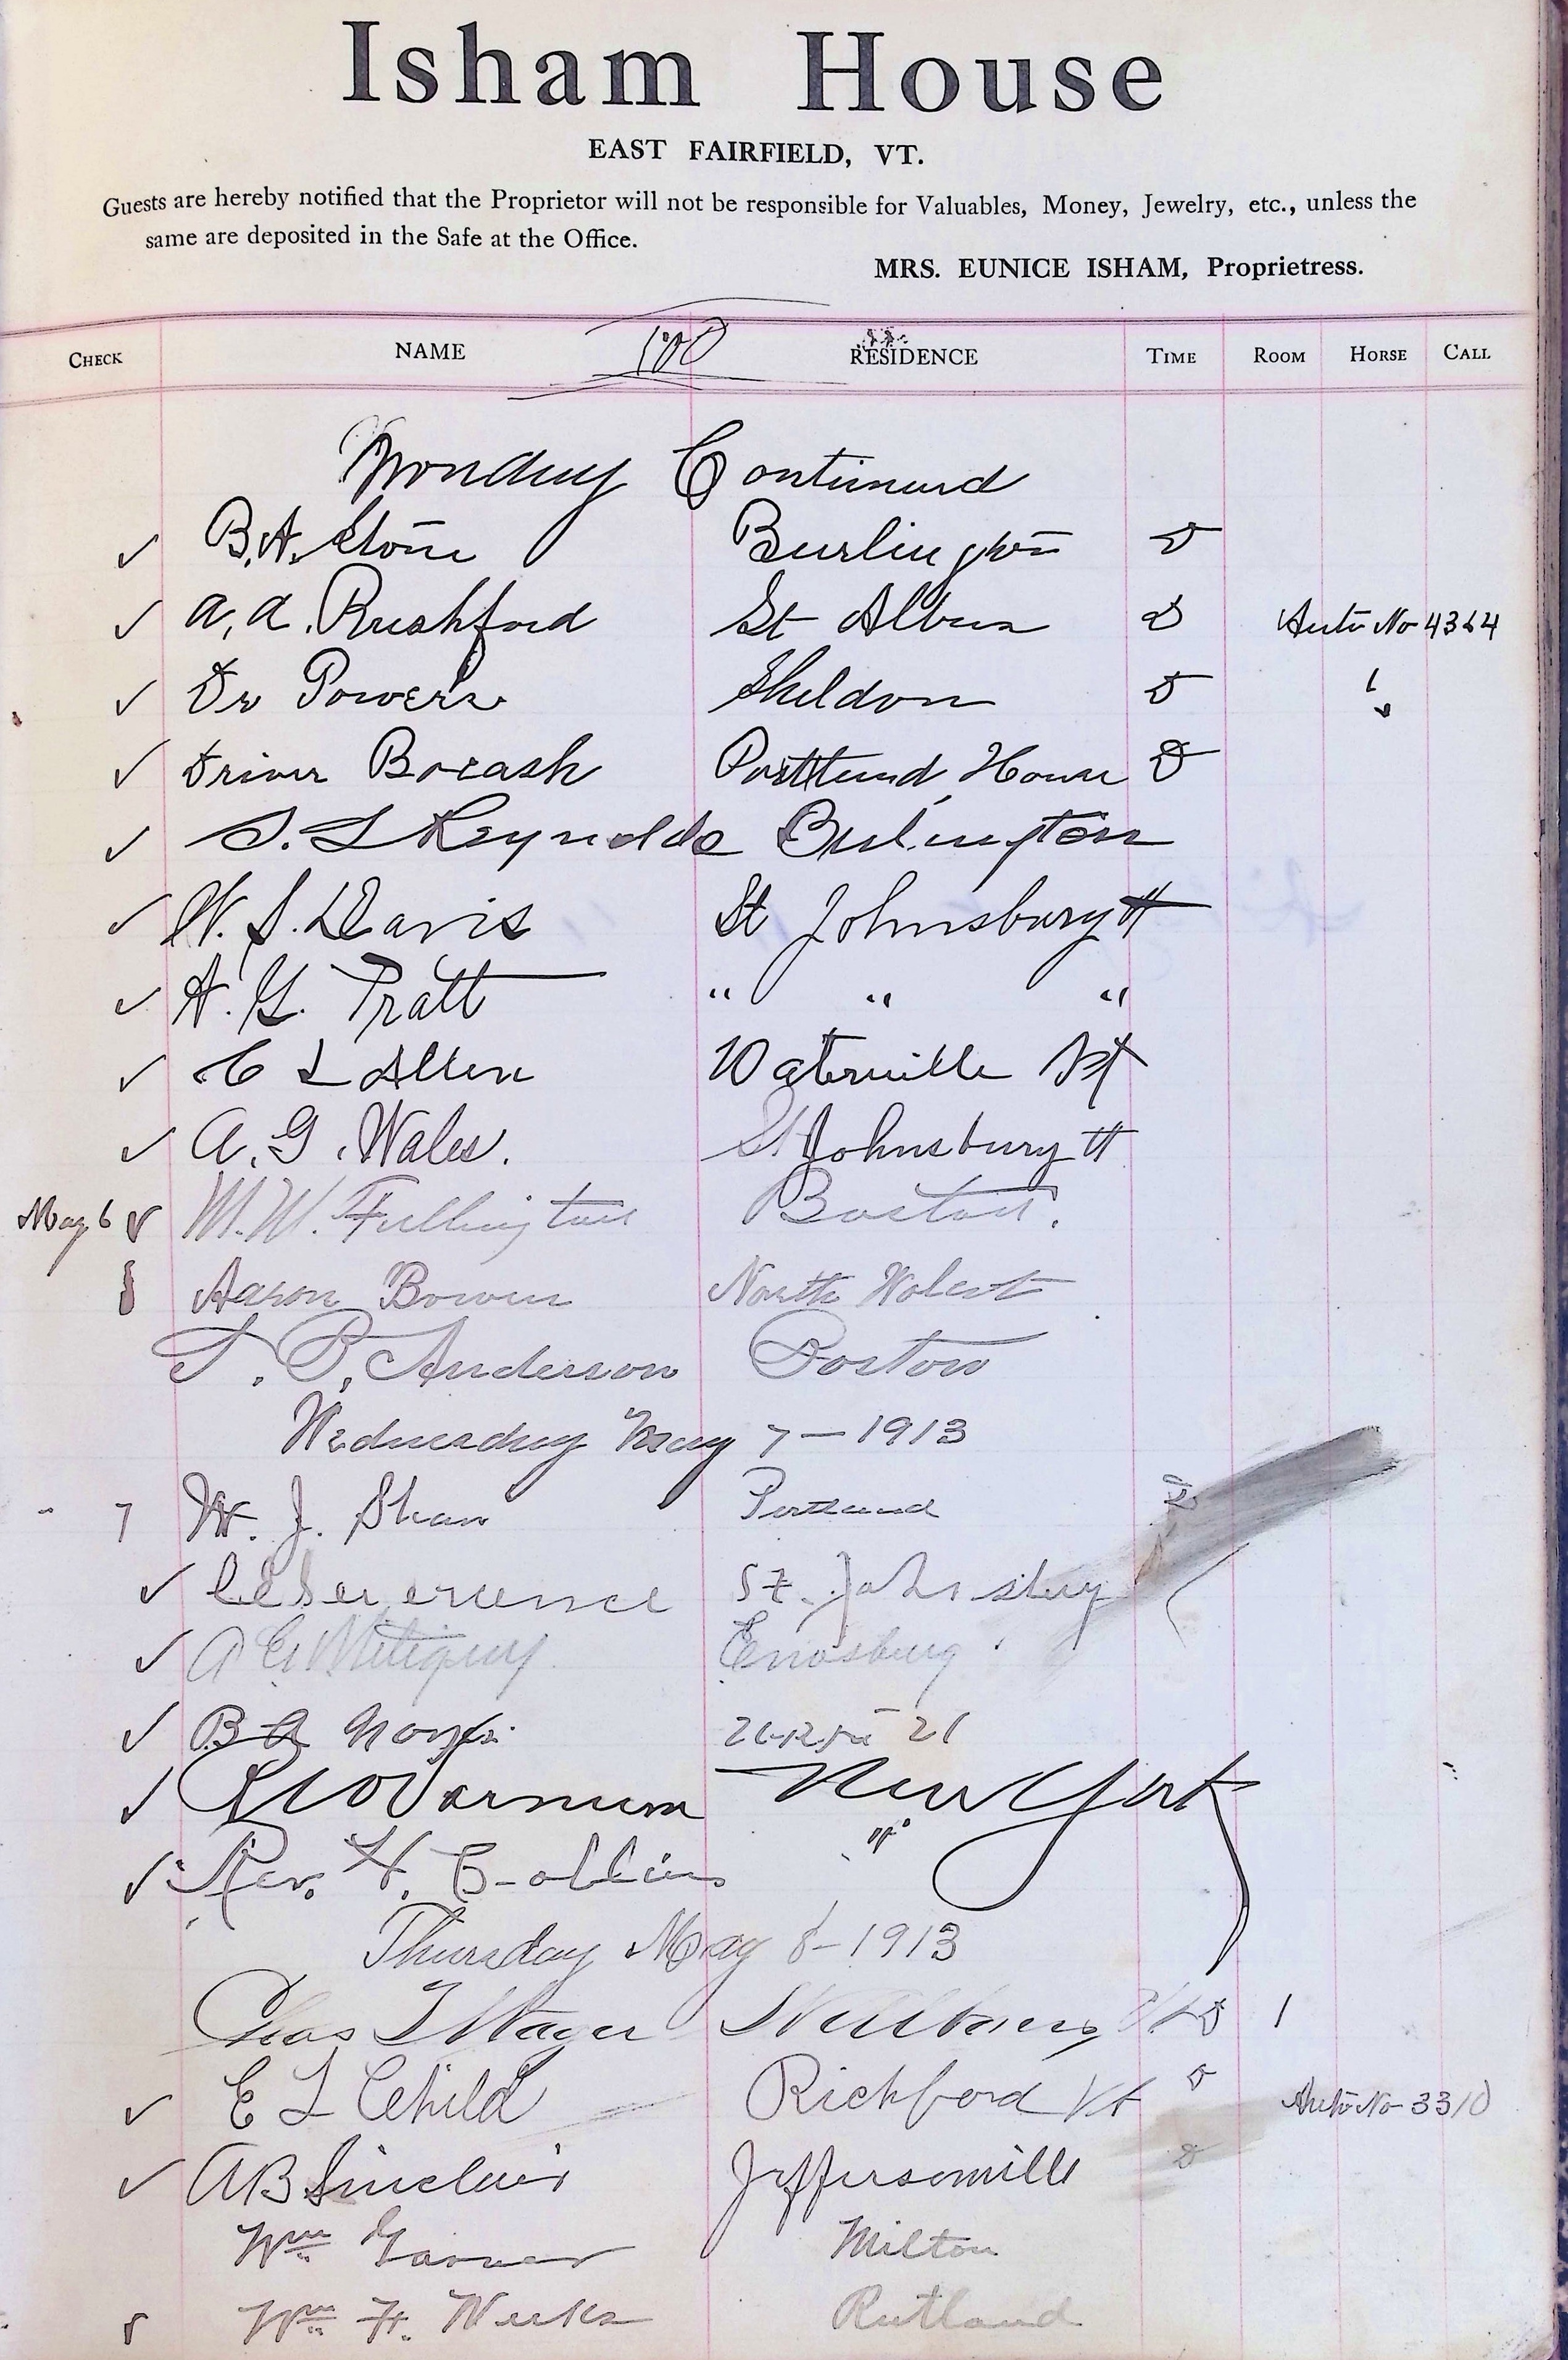 Isham House
EAST FAIRFIELD, VT.
Guests are hereby notified that the Proprietor will not be responsible for Valuables, Money, Jewelry, etc., unless the
same are deposited in the Safe at the Office.
MRS. EUNICE ISHAM, Proprietress.
CHECK NAME 100 RESIDENCE TIME ROOM HORSE CALL
Monday Continued
✓ B.A. Stone Burlington D
✓ A.A. Rushford St Albans D Auto No 4364
✓ Dr Powers Sheldon D 1
✓ Driver Bocash Portland House D
✓ S. L Reynolds Burlington
✓ W. S. Davis St Johnsbury Vt
✓ A. G. Pratt " " "
✓ C L Allen Waterville Vt
✓ A. G. Wales. St Johnsbury Vt
May 6 ✓ M. W. Fullington Boston.
Aaron Bowen North Wolcott
T. P. Anderson Boston
Wednesday May 7 - 1913
7 W. J. Shaw Portland
✓ St. Johnsbury
✓ Enosburg
✓ B A
✓ Varnum New York
✓ Rev. H. Collins "
Thursday May 8 - 1913
Chas T D 1
✓ E L Child Richford Vt D Auto No 3310
✓ A B Sinclair Jeffersonville D
Wm Milton
8 Wm H. Weeks Rutland